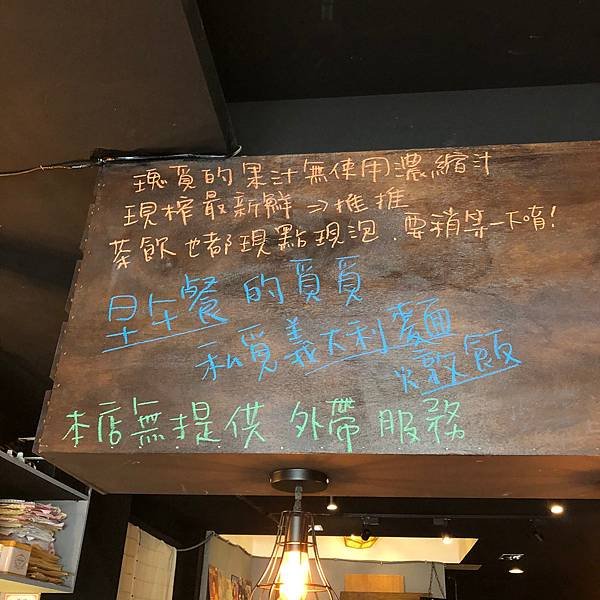 瑰覓的果汁無使用濃縮汁
現榨最新鮮⇒推推
茶飲也都現點現泡.要稍等一下唷!
早午餐的覓覓
私覓義大利麵
燉飯
本店無提供 外帶服務